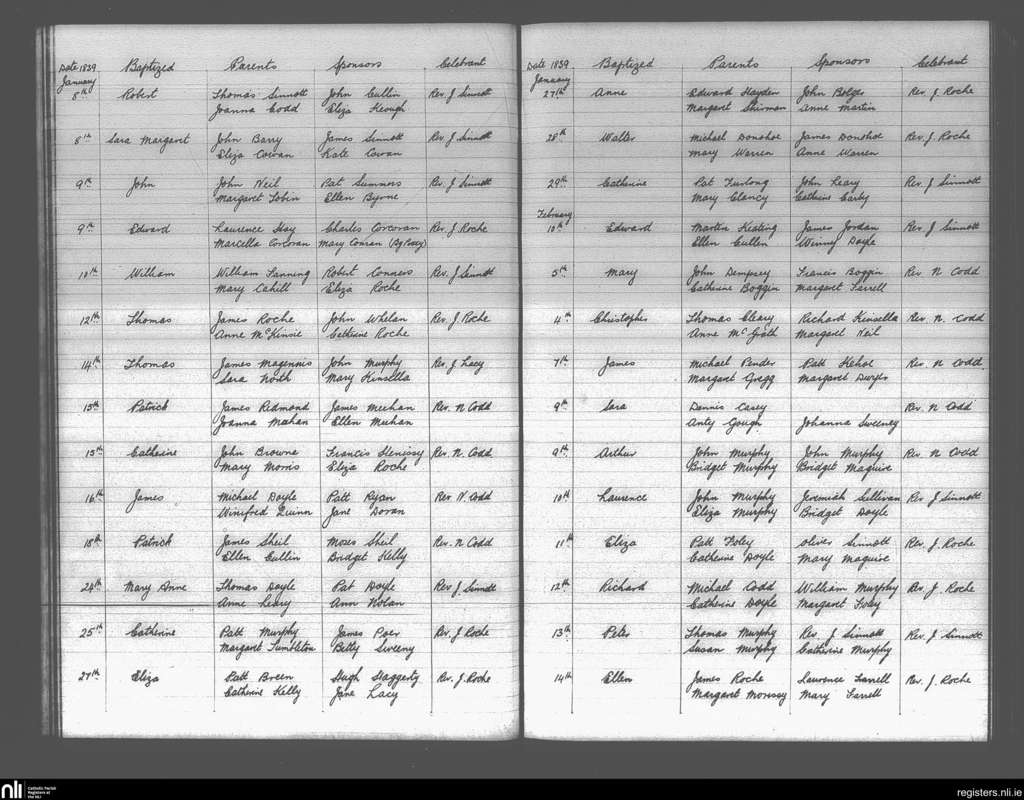 Date 1839 Baptized Parents Sponsors Celebrant
January
8th Robert Thomas Sinnott John Cullin Rev. J Sinnott
Joanna Codd Eliza Keough
8th Sara Margaret John Barry James Sinnott Rev. J Sinnott
Eliza Cowan Kate Cowan
9th John John Neil Pat Summors Rev. J Sinnott
Margaret Tobin Ellen Byrne
9th Edward Laurence Hay Charles Corcoran Rev. J Roche
Marcella Corcoran Mary Conran
10th William William Fanning Robert Connors Rev. J Sinnott
Mary Cahill Eliza Roche
12th Thomas James Roche John Whelan Rev. J Roche
Anne McKinsie Catherine Roche
14th Thomas James Magennis John Murphy Rev. J Lacy
Sara North Mary Kinsella
15th Patrick James Redmond James Meehan Rev. N Codd
Joanna Meehan Ellen Meehan
15th Catherine John Browne Francis Henissy Rev. N. Codd
Mary Morris Eliza Roche
16th James Michael Doyle Patt Ryan Rev N. Codd
Winifred Quinn Jane Doran
18th Patrick James Sheil Moses Sheil Rev. N Codd
Ellen Cullin Bridget Kelly
24th Mary Anne Thomas Doyle Pat Doyle Rev J Sinnott
Anne Leary Ann Nolan
25th Catherine Patt Murphy James Poer Rev. J Roche
Margaret Tumbleton Betty Sweeny
27th Eliza Patt Breen Hugh Haggerty Rev. J. Roche
Catherine Kelly Jane Lacy
Date 1839 Baptized Parents Sponsors Celebrant
January
27th Anne Edward Hayden John Bolger Rev. J Roche
Margaret Shirman Anne Martin
28th Walter Michael Donohoe James Donohoe Rev. J Roche
Mary Warren Anne Warren
29th Catherine Pat Furlong John Leary Rev. J Sinnott
Mary Clancy Catherine Carty
February
10th Edward Martin Keating James Jordan Rev. J Sinnott
Ellen Cullen Winny Doyle
5th Mary John Dempsey Francis Boggin Rev N Codd
Catherine Boggin Margaret Farrell
4th Christopher Thomas Cleary Richard Kinsella Rev. N. Codd
Anne McGrath Margaret Neil
7th James Michael Pender Patt Kehoe Rev. N Codd.
Margaret Gregg Margaret
9th Sara Dennis Casey Rev. N Codd
Anty Gough Johanna Sweeney
9th Arthur John Murphy John Murphy Rev N Codd
Bridget Murphy Bridget Maguire
10th Laurence John Murphy Jeremiah Sullivan Rev J Sinnott
Eliza Murphy Bridget Doyle
11th Eliza Patt Foley Oliver Sinnott Rev. J. Roche
Catherine Doyle Mary Maguire
12th Richard Michael Codd William Murphy Rev. J Roche
Catherine Doyle Margaret Foley
13th Peter Thomas Murphy Rev. J Sinnott Rev. J Sinnott
Susan Murphy Catherine Murphy
14th Ellen James Roche Laurence Farrell Rev. J. Roche
Margaret Morrissy Mary Farrell
nli Catholic Parish
Registers at
the NLI
registers.nli.ie